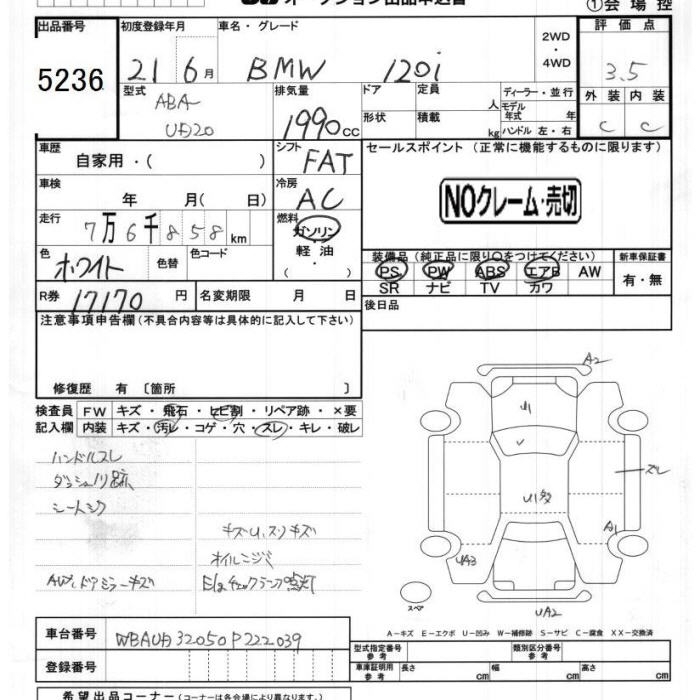 オークション出品申込書
①会場控
出品番号
5236
初度登録年月
21 6月
車名・グレード
BMW 120i
2WD
・
4WD
評価点
3.5
外装 内装
C C
型式
ABA-
UD20
排気量
1990cc
ドア
定員
人
形状
積載
kg
ディーラー・並行
モデル年式 年
ハンドル 左・右
車歴
自家用・( )
シフト
FAT
セールスポイント (正常に機能するものに限ります)
NOクレーム・売切
車検
年 月( 日)
冷房
AC
走行
7万6千858km
燃料
ガソリン
軽油
( ・ )
色
ホワイト
色替
色コード
装備品(純正品に限り○をつけてください)
PS PW ABS エアB AW
SR ナビ TV カワ
新車保証書
有・無
R券
17170円
名変期限 月 日
後日品
注意事項申告欄(不具合内容等は具体的に記入して下さい)
修復歴 有〔箇所 〕
検査員
記入欄
FW キズ・飛石・ヒビ割・リペア跡・×要
内装 キズ・汚レ・コゲ・穴・スレ・キレ・破レ
ハンドルスレ
ダッシュノリ跡
シートシワ
キズU.スリキズ
オイルニジミ
AW.ドアミラーキズ
Egチェックランプ点灯
A2
U1
U1多
スレ
A1
UA3
UA2
スペア
A-キズ E-エクボ U-凹み W-補修跡 S-サビ C-腐食 XX-交換済
車台番号
WBAUD32050P222039
登録番号
型式指定番号
参考
類別区分番号
参考
車庫証明用
参考
長さ cm 幅 cm 高さ cm
希望出品コーナー(コーナーは各会場により異なります。)